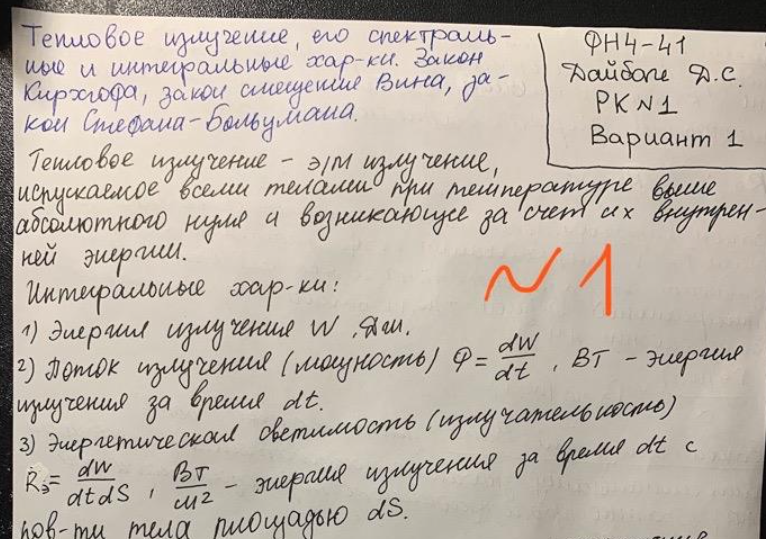 Тепловое излучение, его спектраль-
ные и интегральные хар-ки. Закон
Кирхгофа, закон смещения Вина, за-
кон Стефана-Больцмана.
ФН4-41
Дайболе Д.С.
РК №1
Вариант 1
Тепловое излучение - э/м излучение,
испускаемое всеми телами при температуре выше
абсолютного нуля и возникающее за счет их внутрен-
ней энергии.
№1
Интегральные хар-ки:
1) Энергия излучения W, Дж.
2) Поток излучения (мощность) Φ = dW/dt, Вт - энергия
излучения за время dt.
3) Энергетическая светимость (излучательность)
Rэ = dW/dtdS, Вт/м² - энергия излучения за время dt с
пов-ти тела площадью dS.